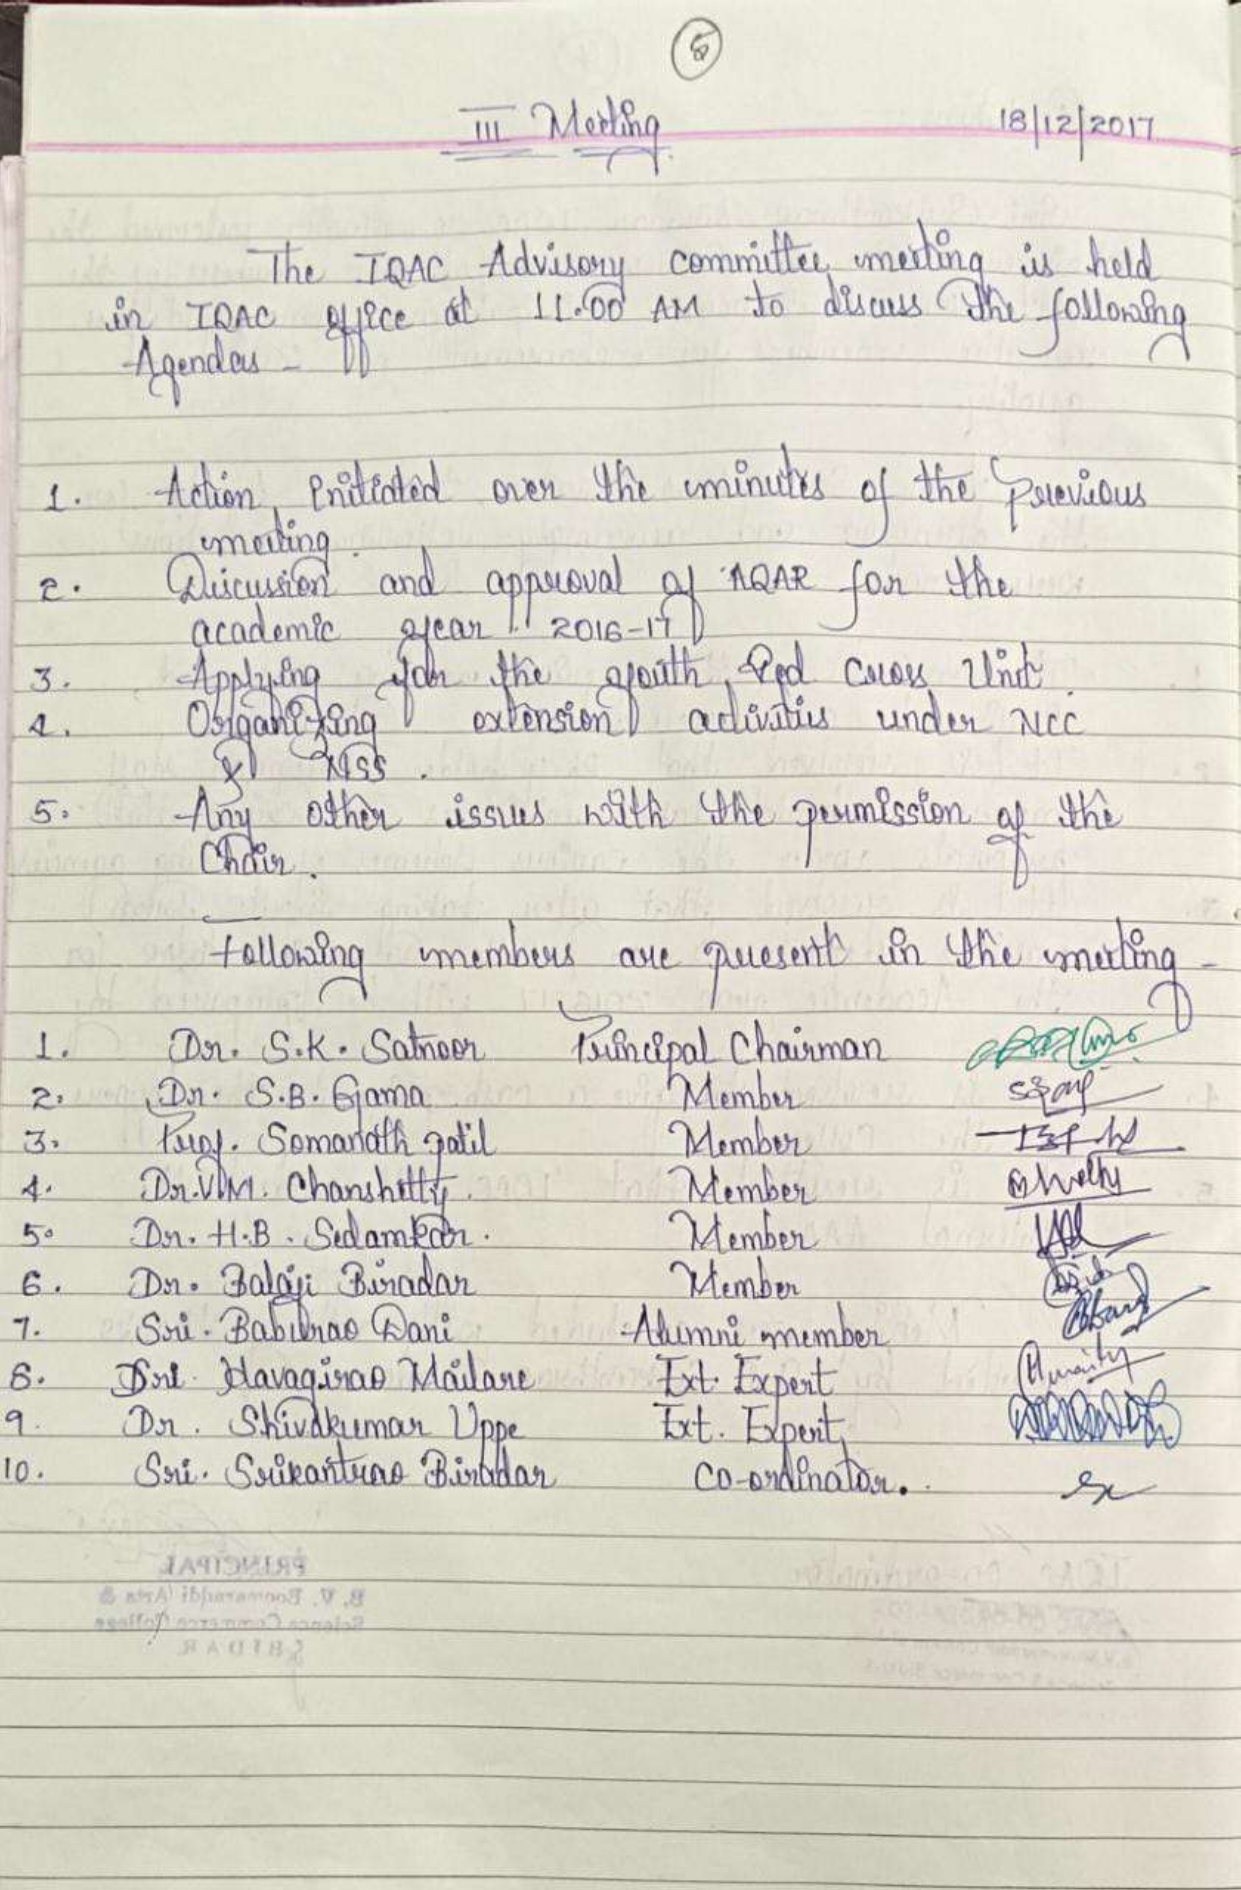 III Meeting 18/12/2017
The IQAC Advisory committee meeting is held
in IQAC office at 11.00 AM to discuss the following
Agendas -
1. Action initiated over the minutes of the previous
meeting.
2. Discussion and approval of AQAR for the
academic year 2016-17
3. Applying for the youth Red Cross Unit.
4. Organizing extension activities under NCC
& NSS.
5. Any other issues with the permission of the
Chair.
Following members are present in the meeting -
1. Dr. S.K. Satnoor Principal Chairman
2. Dr. S.B. Gama Member
3. Prof. Somanath patil Member
4. Dr. V.M. Chanshetty Member
5. Dr. H.B. Sedamkar. Member
6. Dr. Balaji Biradar Member
7. Sri. Baburao Dani Alumni member
8. Sri. Havagirao Mailare Ext. Expert
9. Dr. Shivakumar Uppe Ext. Expert
10. Sri. Srikantrao Biradar Co-ordinator.